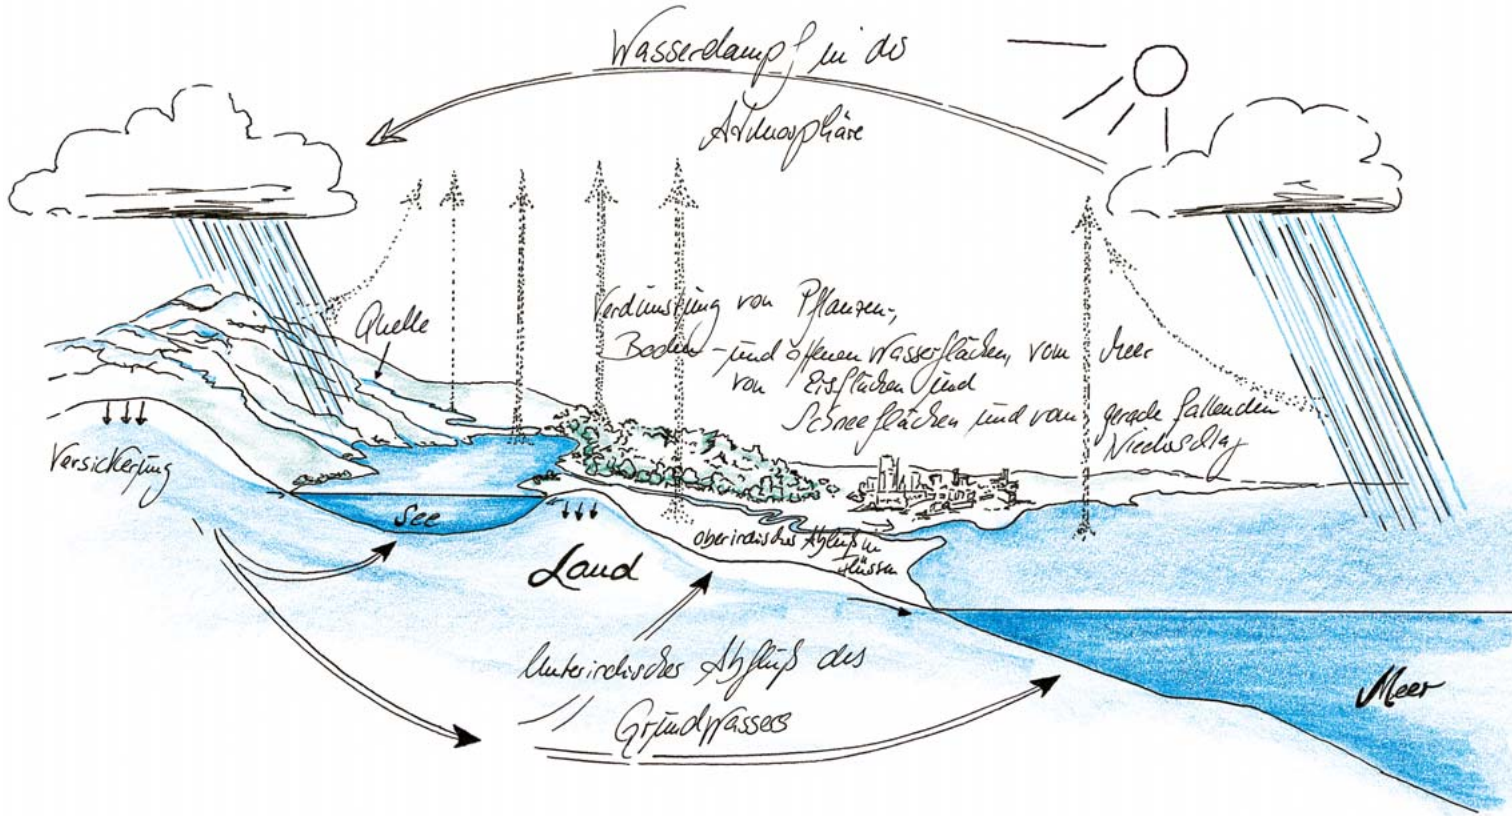 Wasserdampf in der
Atmosphäre
Quelle
Verdunstung von Pflanzen-,
Boden- und offenen Wasserflächen, vom Meer
von Eisflächen und
Schneeflächen und vom gerade fallenden
Niederschlag
Versickerung
See
Land
oberirdischer Abfluß in
Flüssen
Unterirdischer Abfluß des
Grundwassers
Meer